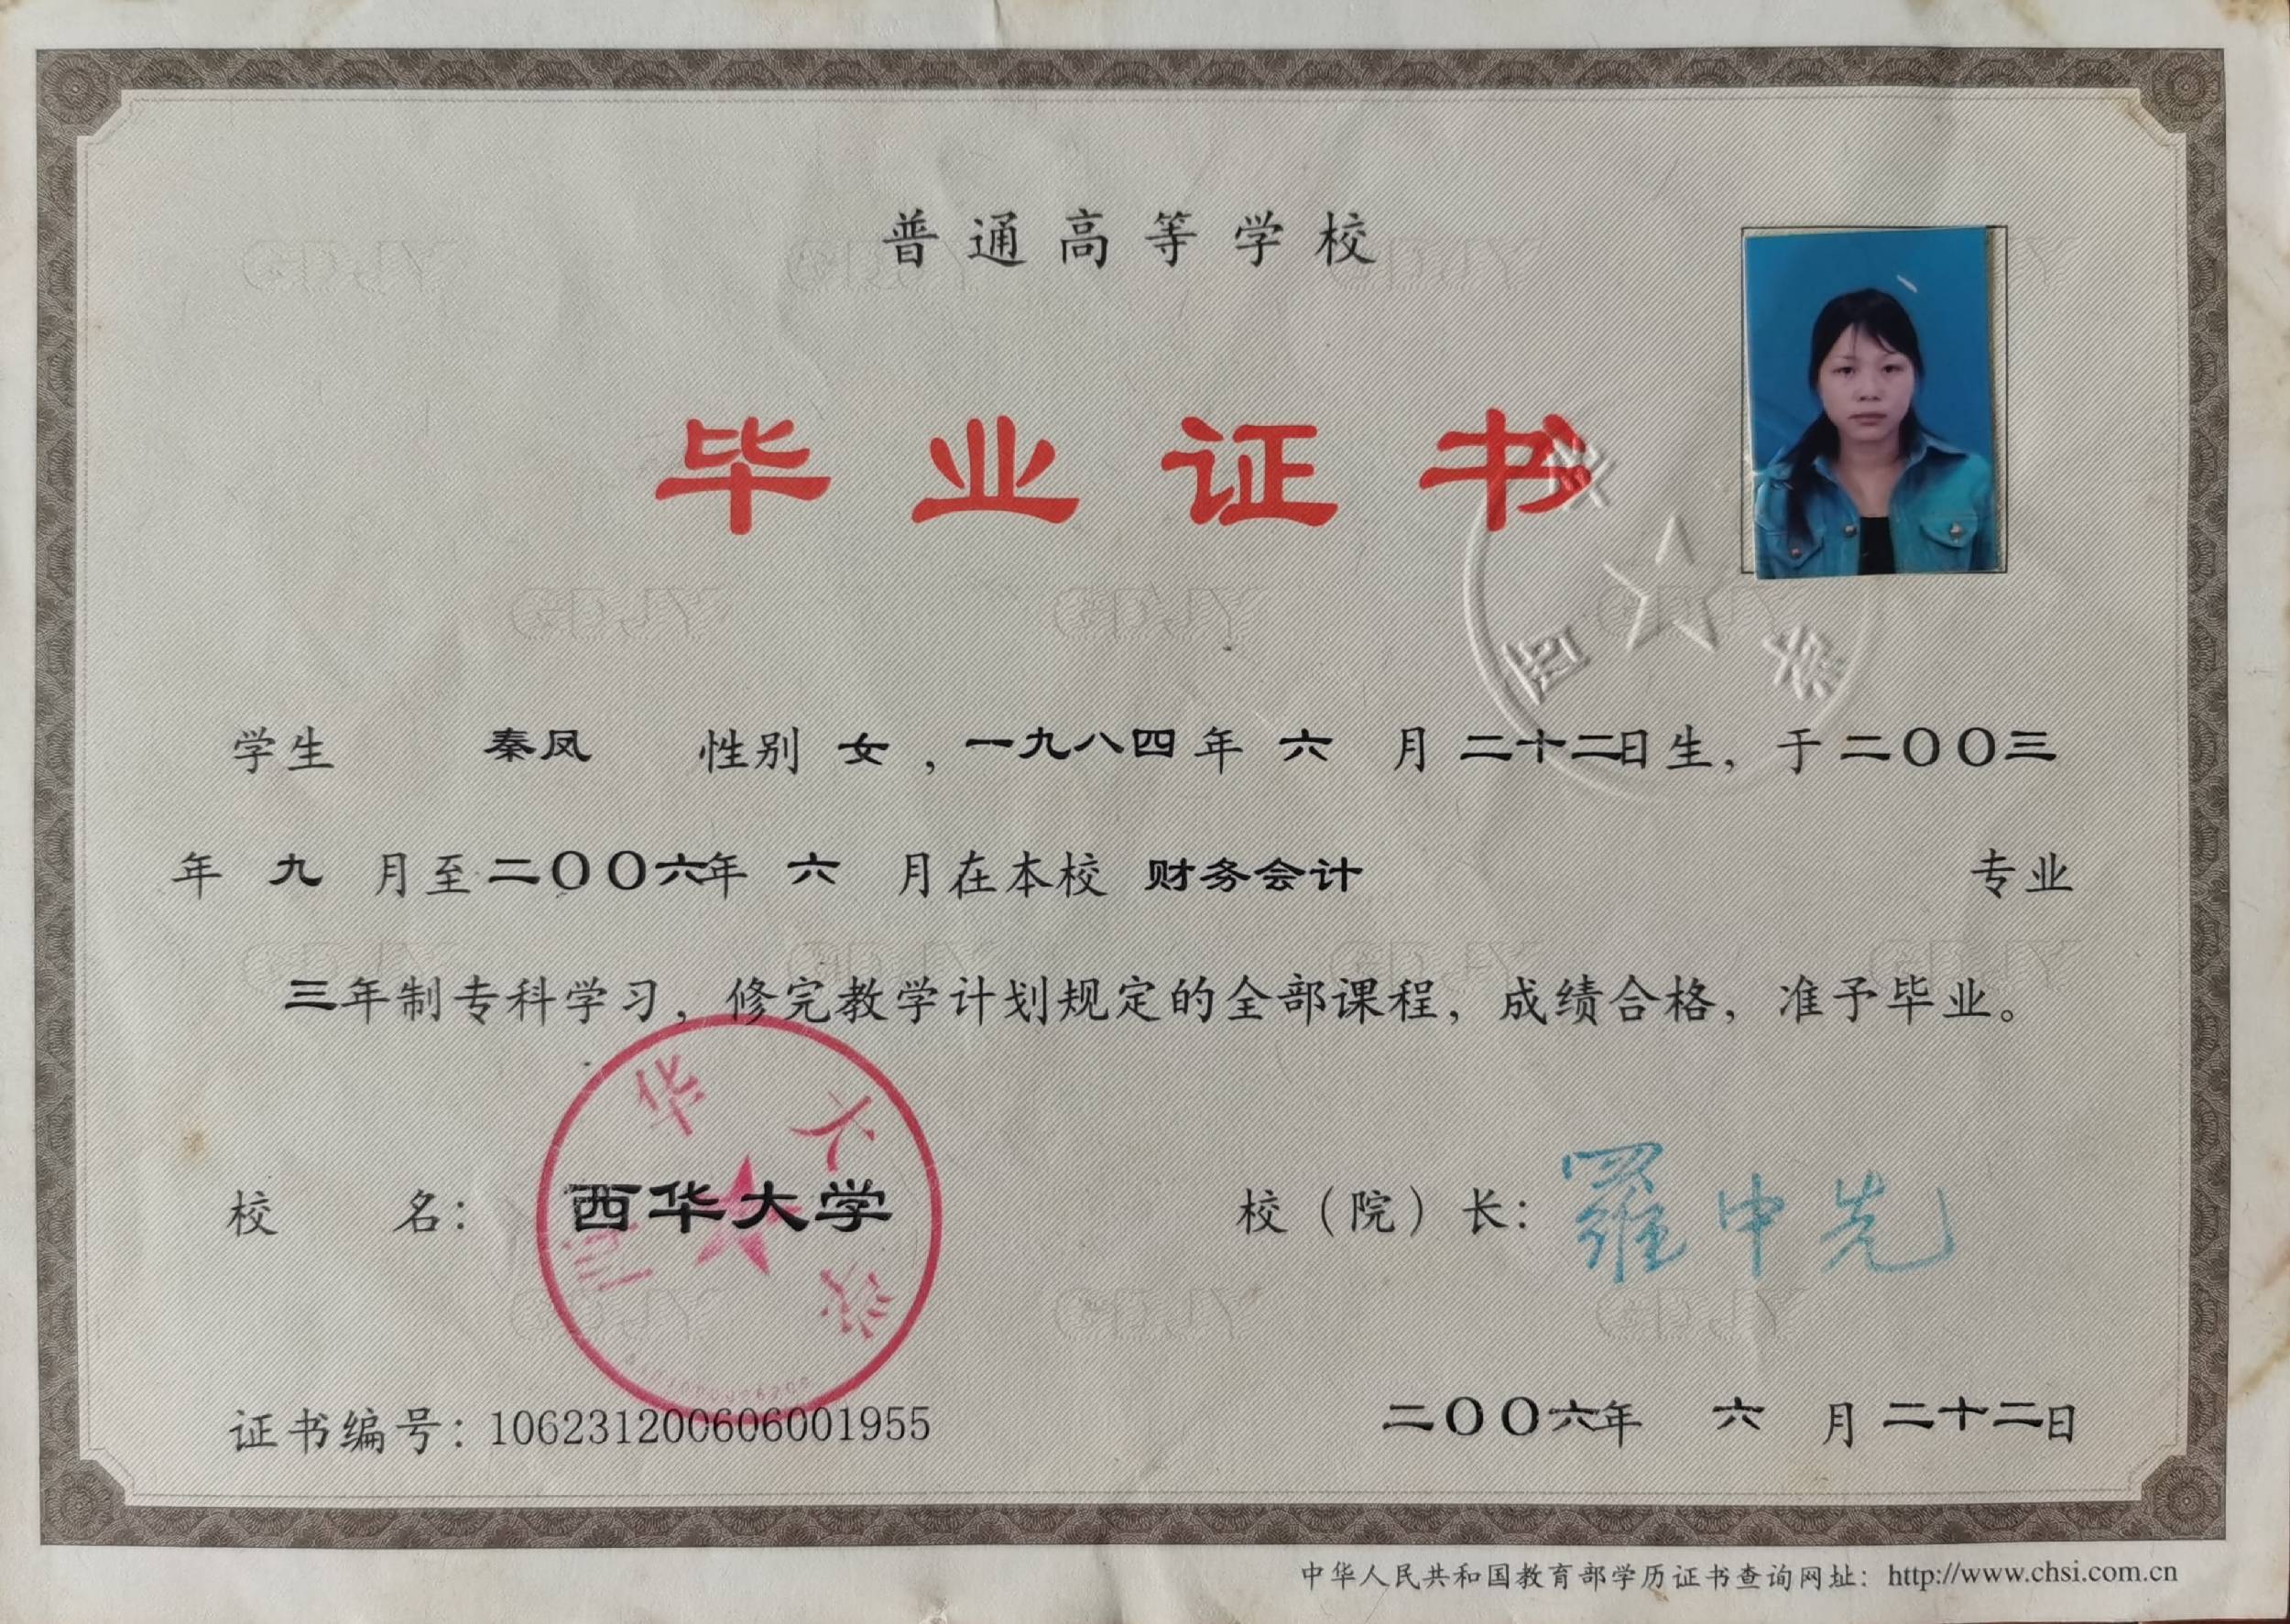 普通高等学校
毕业证书
学生 秦凤 性别 女，一九八四年 六 月 二十二日生，于二〇〇三
年 九 月至二〇〇六年 六 月在本校 财务会计 专业
三年制专科学习，修完教学计划规定的全部课程，成绩合格，准予毕业。
校 名：西华大学 校（院）长：羅中先
西华大学
证书编号：106231200606001955 二〇〇六年 六 月 二十二日
中华人民共和国教育部学历证书查询网址：http://www.chsi.com.cn